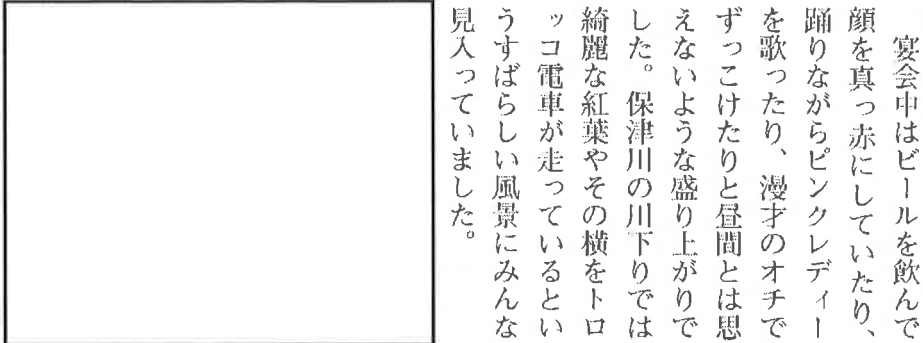 宴会中はビールを飲んで
顔を真っ赤にしていたり、
踊りながらピンクレディー
を歌ったり、漫才のオチで
ずっこけたりと昼間とは思
えないような盛り上がりで
した。保津川の川下りでは
綺麗な紅葉やその横をトロ
ッコ電車が走っているとい
うすばらしい風景にみんな
見入っていました。